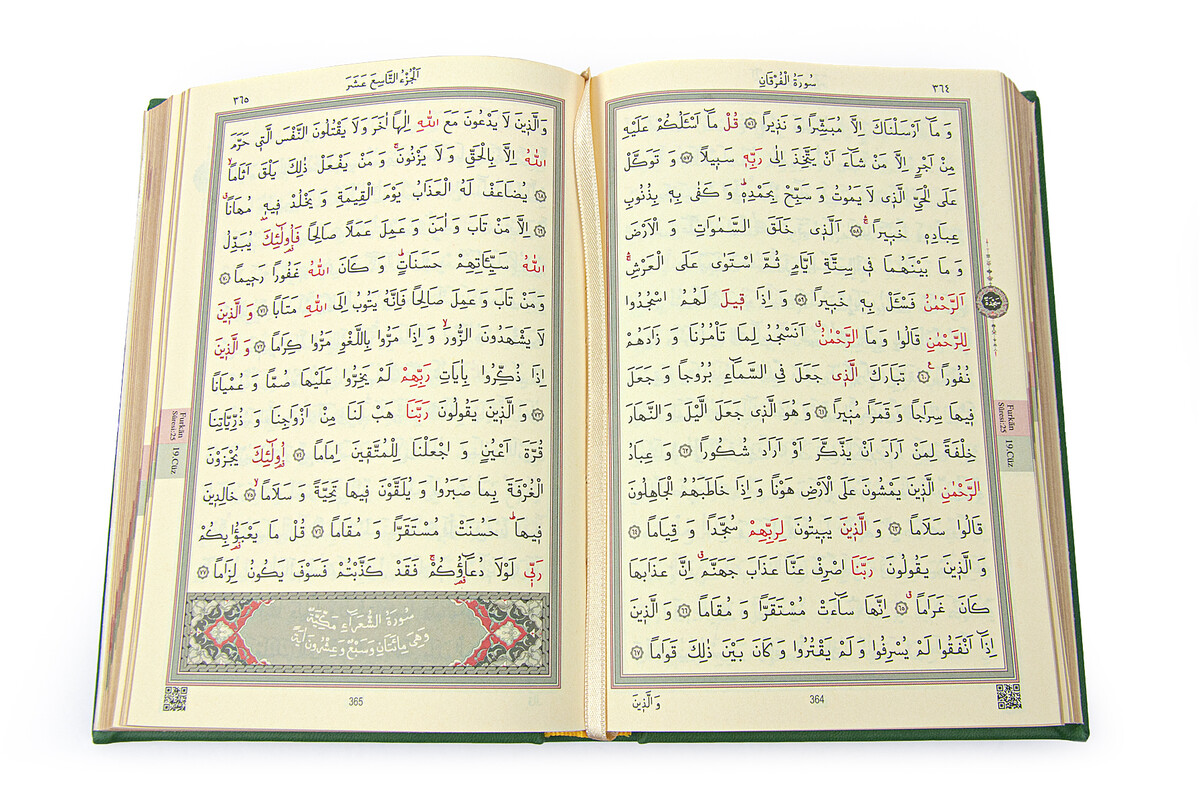 سُورَةُ الْفُرْقَانِ
٣٦٤
وَ مَٓا اَرْسَلْنَاكَ اِلَّا مُبَشِّرًا وَ نَذٖيرًا ۝٥٦ قُلْ مَٓا اَسْـَٔلُكُمْ عَلَيْهِ
مِنْ اَجْرٍ اِلَّا مَنْ شَٓاءَ اَنْ يَتَّخِذَ اِلٰى رَبِّهٖ سَبٖيلًا ۝٥٧ وَ تَوَكَّلْ
عَلَى الْحَيِّ الَّذٖى لَا يَمُوتُ وَ سَبِّحْ بِحَمْدِهٖؕ وَ كَفٰى بِهٖ بِذُنُوبِ
عِبَادِهٖ خَبٖيرًاۚ ۝٥٨ اَلَّذٖى خَلَقَ السَّمٰوَاتِ وَ الْاَرْضَ
وَ مَا بَيْنَهُمَا فٖى سِتَّةِ اَيَّامٍ ثُمَّ اسْتَوٰى عَلَى الْعَرْشِۚ
اَلرَّحْمٰنُ فَسْـَٔلْ بِهٖ خَبٖيرًا ۝٥٩ وَ اِذَا قٖيلَ لَهُمُ اسْجُدُوا
لِلرَّحْمٰنِ قَالُوا وَ مَا الرَّحْمٰنُۗ اَنَسْجُدُ لِمَا تَأْمُرُنَا وَ زَادَهُمْ
نُفُورًا ۝٦٠ تَبَارَكَ الَّذٖى جَعَلَ فِى السَّمَٓاءِ بُرُوجًا وَ جَعَلَ
فٖيهَا سِرَاجًا وَ قَمَرًا مُنٖيرًا ۝٦١ وَ هُوَ الَّذٖى جَعَلَ الَّيْلَ وَ النَّهَارَ
خِلْفَةً لِمَنْ اَرَادَ اَنْ يَذَّكَّرَ اَوْ اَرَادَ شُكُورًا ۝٦٢ وَ عِبَادُ
الرَّحْمٰنِ الَّذٖينَ يَمْشُونَ عَلَى الْاَرْضِ هَوْنًا وَ اِذَا خَاطَبَهُمُ الْجَاهِلُونَ
قَالُوا سَلَامًا ۝٦٣ وَ الَّذٖينَ يَبٖيتُونَ لِرَبِّهِمْ سُجَّدًا وَ قِيَامًا ۝٦٤
وَ الَّذٖينَ يَقُولُونَ رَبَّنَا اصْرِفْ عَنَّا عَذَابَ جَهَنَّمَۗ اِنَّ عَذَابَهَا
كَانَ غَرَامًاۗ ۝٦٥ اِنَّهَا سَٓاءَتْ مُسْتَقَرًّا وَ مُقَامًا ۝٦٦ وَ الَّذٖينَ
اِذَٓا اَنْفَقُوا لَمْ يُسْرِفُوا وَ لَمْ يَقْتُرُوا وَ كَانَ بَيْنَ ذٰلِكَ قَوَامًا ۝٦٧
وَ الَّذٖينَ
364
سَجْدَة
Furkân
Sûresi:25
19.Cüz
٣٦٥
اَلْجُزْءُ التَّاسِعَ عَشَرَ
وَ الَّذٖينَ لَا يَدْعُونَ مَعَ اللّٰهِ اِلٰهًا اٰخَرَ وَ لَا يَقْتُلُونَ النَّفْسَ الَّتٖى حَرَّمَ
اللّٰهُ اِلَّا بِالْحَقِّ وَ لَا يَزْنُونَۚ وَ مَنْ يَفْعَلْ ذٰلِكَ يَلْقَ اَثَامًاۙ
۝٦٨ يُضَاعَفْ لَهُ الْعَذَابُ يَوْمَ الْقِيٰمَةِ وَ يَخْلُدْ فٖيهٖ مُهَانًاۗ
۝٦٩ اِلَّا مَنْ تَابَ وَ اٰمَنَ وَ عَمِلَ عَمَلًا صَالِحًا فَاُولٰٓئِكَ يُبَدِّلُ
اللّٰهُ سَيِّـَٔاتِهِمْ حَسَنَاتٍؕ وَ كَانَ اللّٰهُ غَفُورًا رَحٖيمًا ۝٧٠
وَ مَنْ تَابَ وَ عَمِلَ صَالِحًا فَاِنَّهُ يَتُوبُ اِلَى اللّٰهِ مَتَابًا ۝٧١ وَ الَّذٖينَ
لَا يَشْهَدُونَ الزُّورَۙ وَ اِذَا مَرُّوا بِاللَّغْوِ مَرُّوا كِرَامًا ۝٧٢ وَ الَّذٖينَ
اِذَا ذُكِّرُوا بِاٰيَاتِ رَبِّهِمْ لَمْ يَخِرُّوا عَلَيْهَا صُمًّا وَ عُمْيَانًا
۝٧٣ وَ الَّذٖينَ يَقُولُونَ رَبَّنَا هَبْ لَنَا مِنْ اَزْوَاجِنَا وَ ذُرِّيَّاتِنَا
قُرَّةَ اَعْيُنٍ وَ اجْعَلْنَا لِلْمُتَّقٖينَ اِمَامًا ۝٧٤ اُولٰٓئِكَ يُجْزَوْنَ
الْغُرْفَةَ بِمَا صَبَرُوا وَ يُلَقَّوْنَ فٖيهَا تَحِيَّةً وَ سَلَامًاۙ ۝٧٥ خَالِدٖينَ
فٖيهَاؕ حَسُنَتْ مُسْتَقَرًّا وَ مُقَامًا ۝٧٦ قُلْ مَا يَعْبَؤُا بِكُمْ
رَبّٖى لَوْلَا دُعَٓاؤُكُمْۚ فَقَدْ كَذَّبْتُمْ فَسَوْفَ يَكُونُ لِزَامًا ۝٧٧
سُورَةُ الشُّعَرَاءِ مَكِّيَّةٌ
وَ هِىَ مِائَتَانِ وَ سَبْعٌ وَ عِشْرُونَ اٰيَةً
365
Furkân
Sûresi:25
19.Cüz